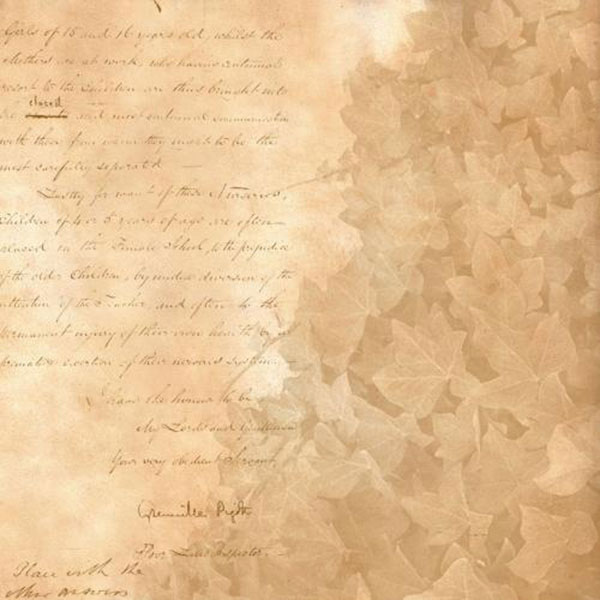 Girls of 15 and 16 years old, whilst the
Mothers are at work, who having continual
resort to the Children are thus brought into
the closed and most continual communication
with those from whom they ought to be the
most carefully separated —
Lastly for want of these Nurseries,
Children of 4 or 5 years of age are often
placed in the Female School, to the prejudice
of the older Children, by undue diversion of the
attention of the Teacher and often to the
permanent injury of their own health by
premature exertion of their nervous system. —
I have the honour to be
My Lords and Gentlemen
Your very obedient Servant
Grenville Pigott
Poor Law Inspector. —
Place with the
other answers